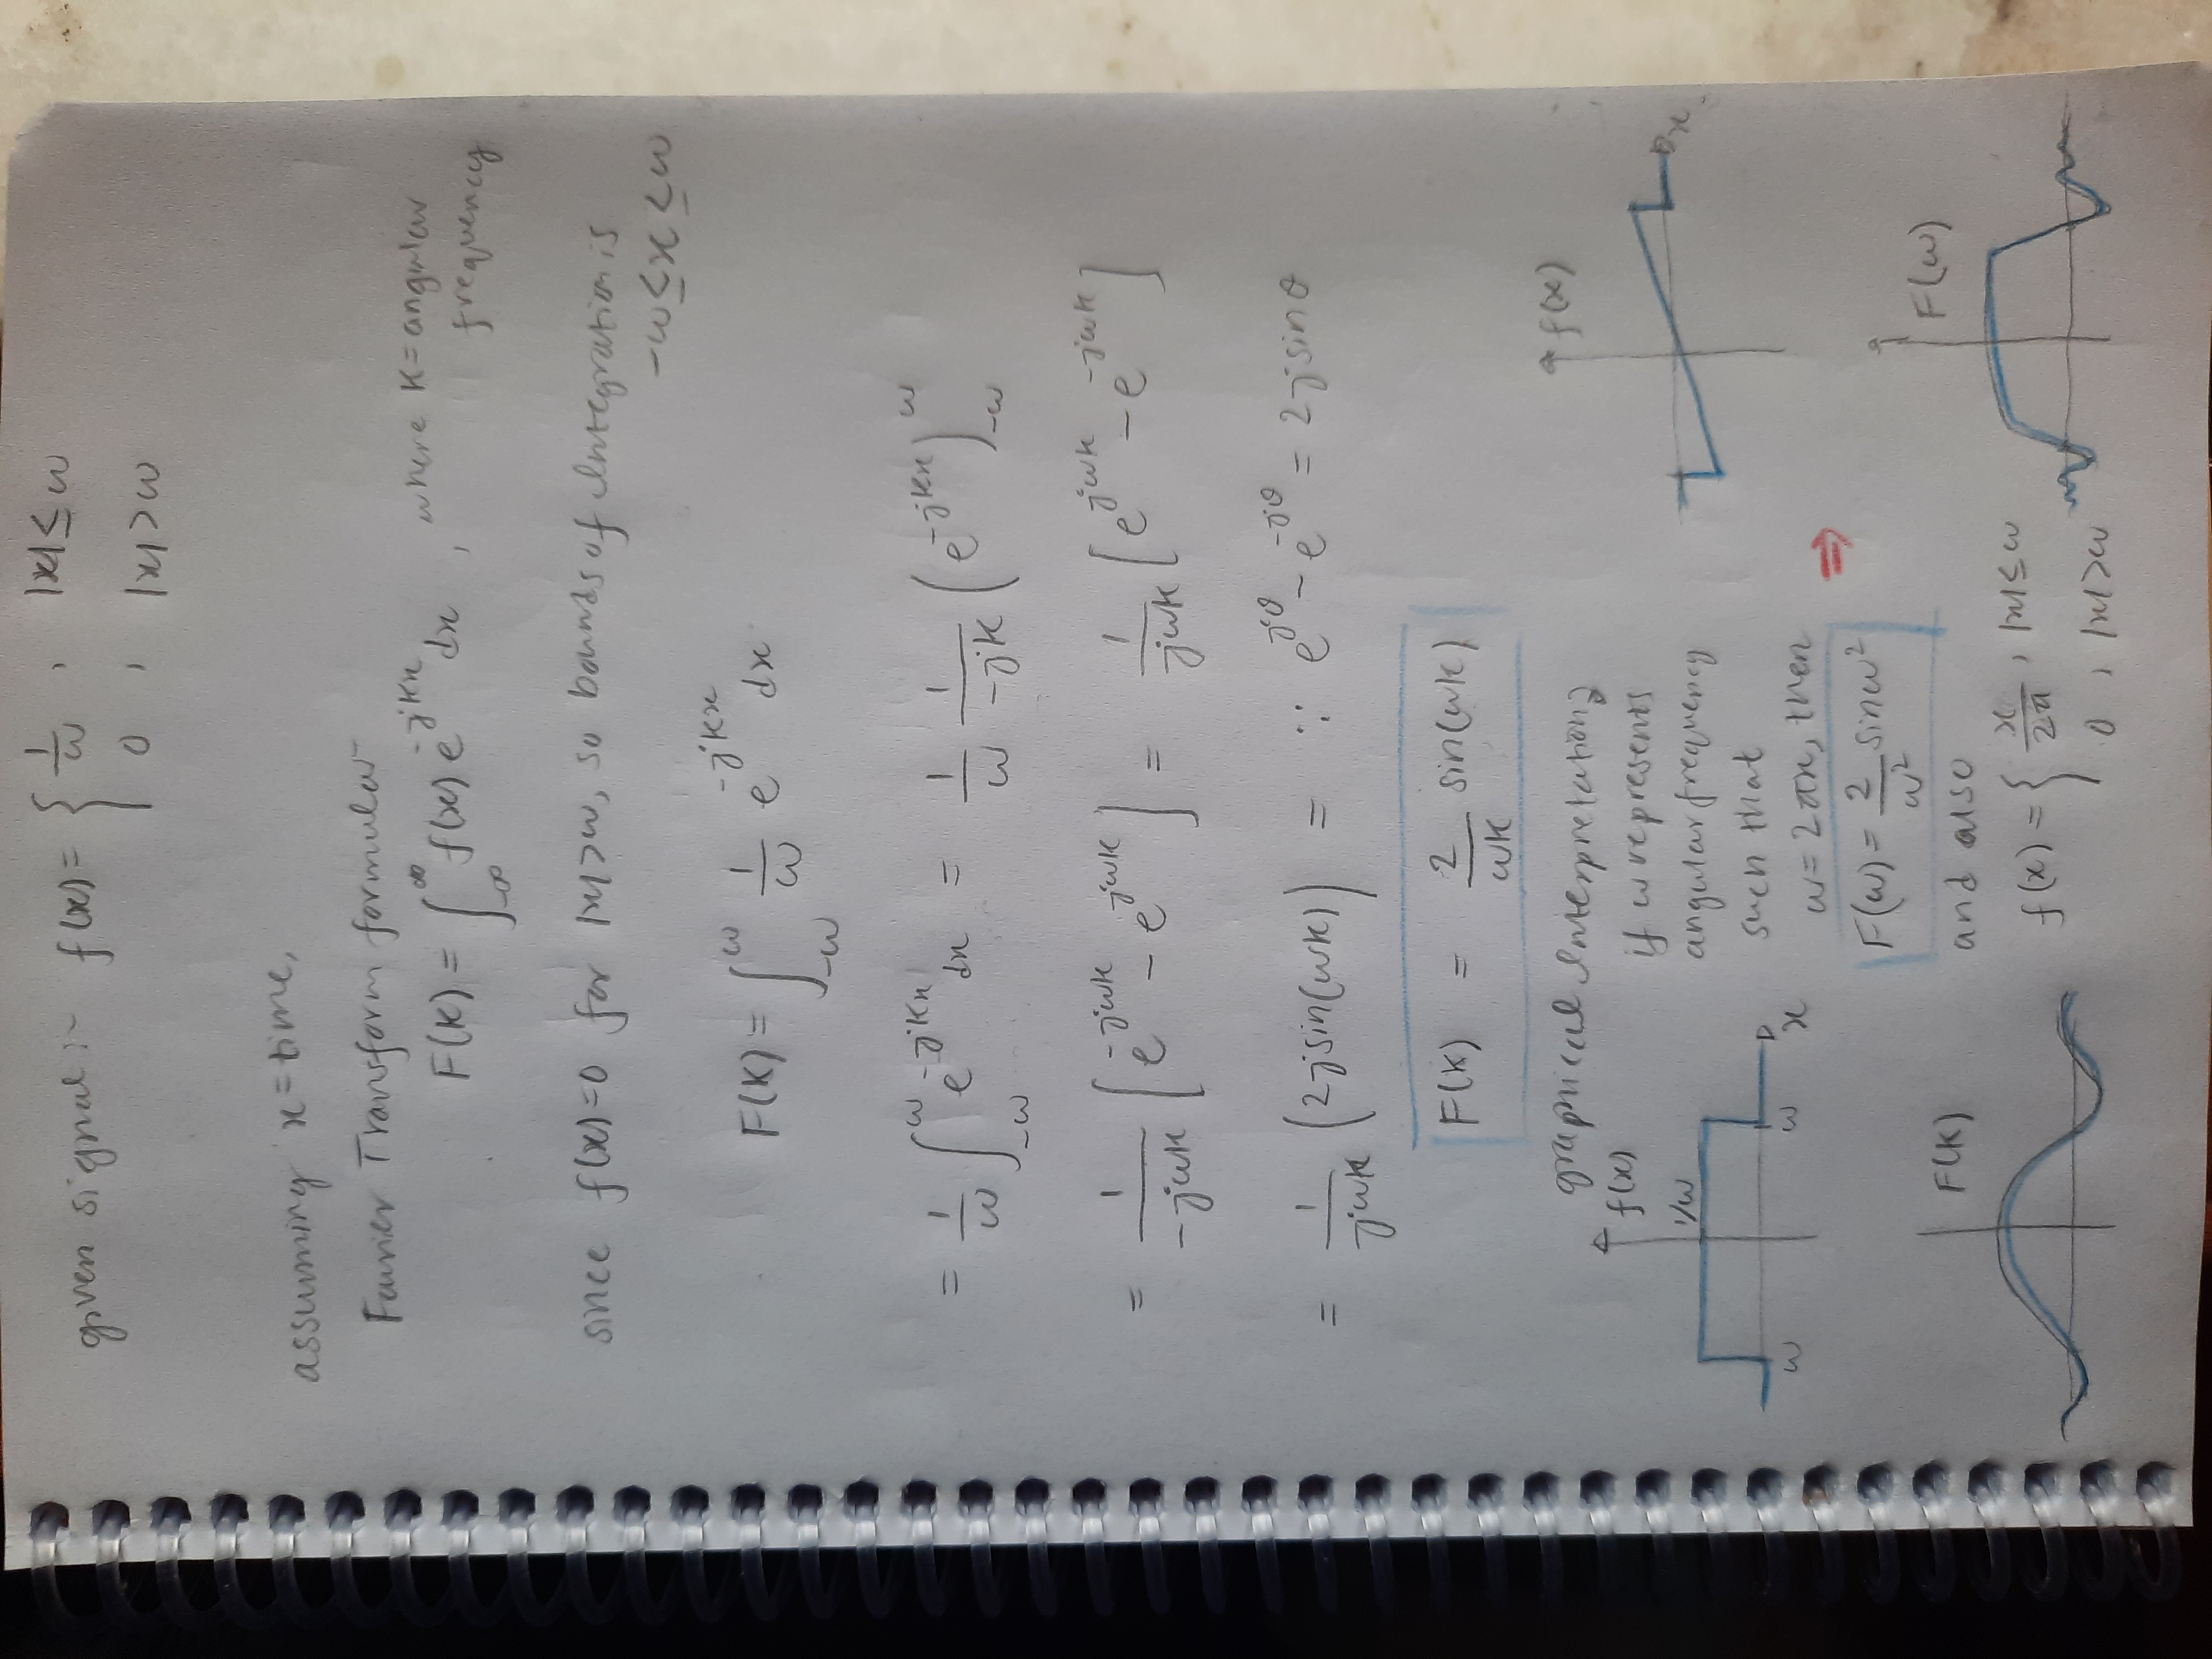 given signal :- f(x) = { 1/ω , |x| ≤ ω
0 , |x| > ω
assuming x = time,
Fourier Transform formula:-
F(K) = ∫_{-∞}^{∞} f(x) e^{-jKx} dx , where K = angular
frequency
since f(x)=0 for |x|>ω, so bounds of Integration is
-ω ≤ x ≤ ω
F(K) = ∫_{-ω}^{ω} 1/ω e^{-jKx} dx
= 1/ω ∫_{-ω}^{ω} e^{-jKx} dx = 1/ω 1/-jK (e^{-jKx})_{-ω}^{ω}
= 1/-jωK [e^{-jωK} - e^{jωK}] = 1/jωK [e^{jωK} - e^{-jωK}]
= 1/jωK (2jsin(ωK)) = ∵ e^{jθ} - e^{-jθ} = 2jsinθ
F(K) = 2/ωK sin(ωK)
graphical Interpretation:
f(x)
1/ω
ω ω x
F(K)
if ω represents
angular frequency
such that
ω = 2πx, then
F(ω) = 2/ω² sinω²
and also
f(x) = { x/2π , |x| ≤ ω
0 , |x| > ω
⇒
f(x)
x
F(ω)